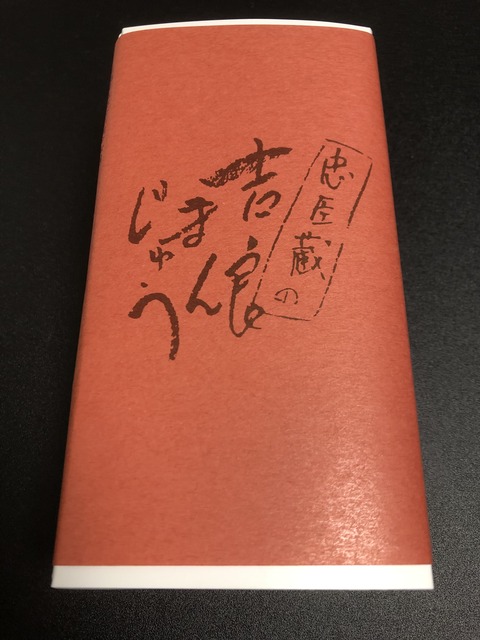 忠臣蔵の
吉良
まん
じゅう